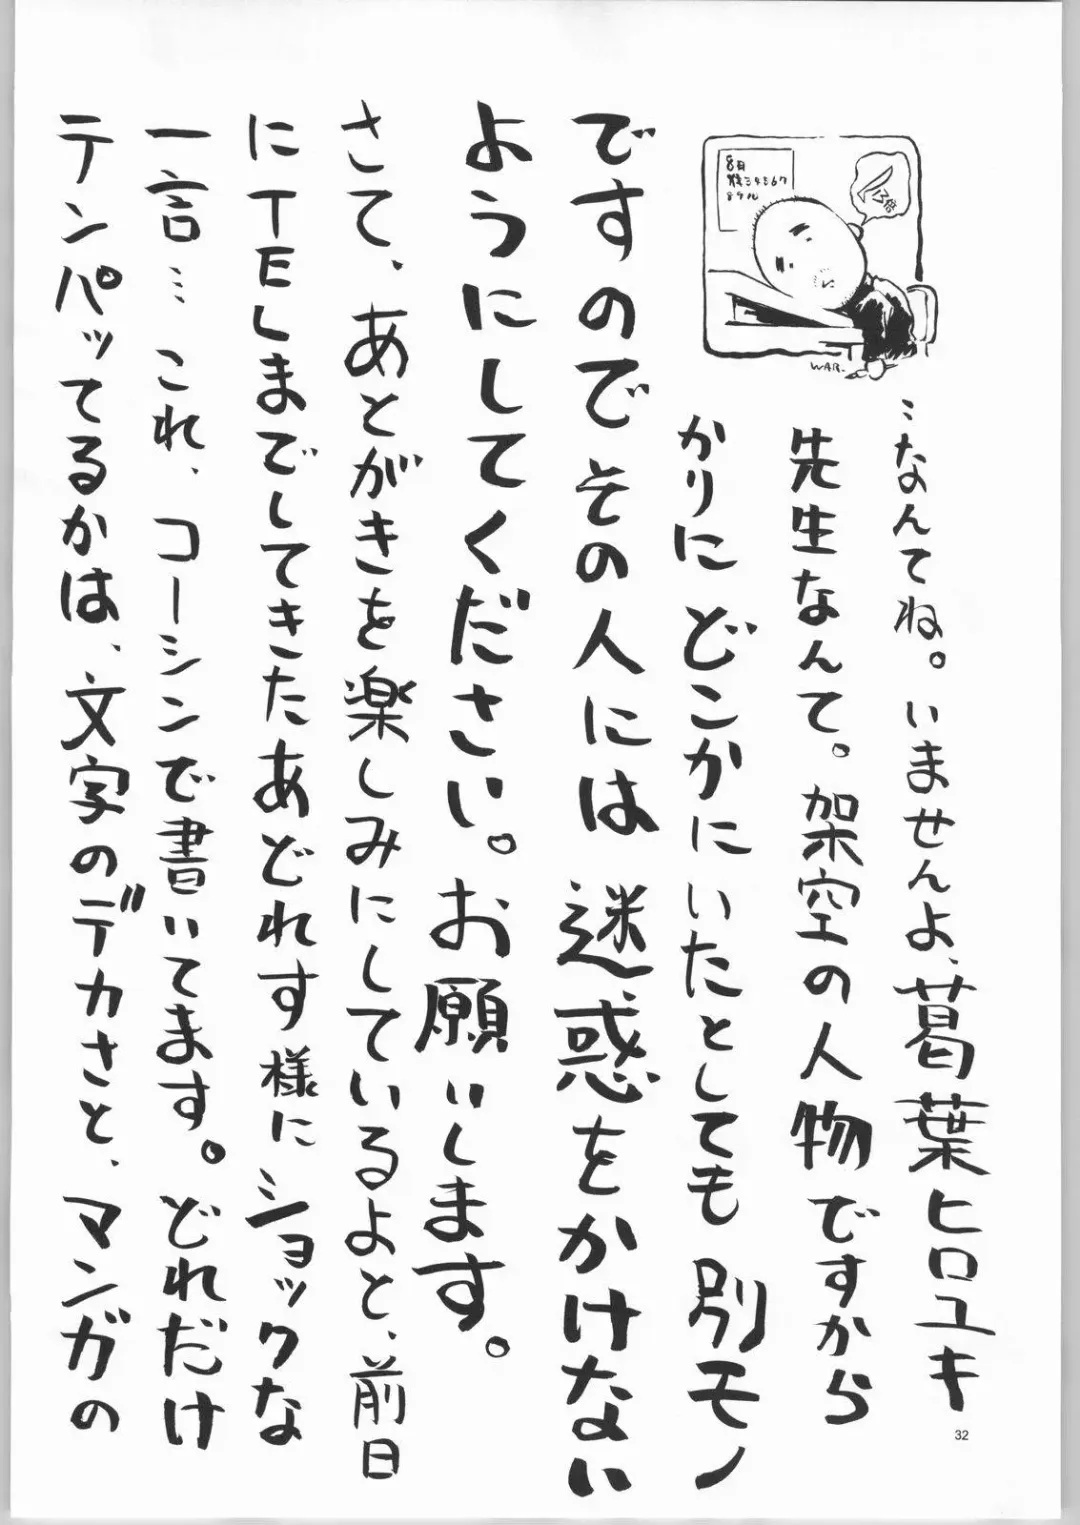 …なんてね。いませんよ、葛葉ヒロユキ
先生なんて。架空の人物ですから
かりにどこかにいたとしても別モノ
ですのでその人には迷惑をかけない
ようにしてください。お願いします。
さて、あとがきを楽しみにしているよと、前日
にTELまでしてきたあどれす様にショックな
一言…これ、コーシンで書いてます。どれだけ
テンパッてるかは、文字のデカさと、マンガの
8月
WAB.
32